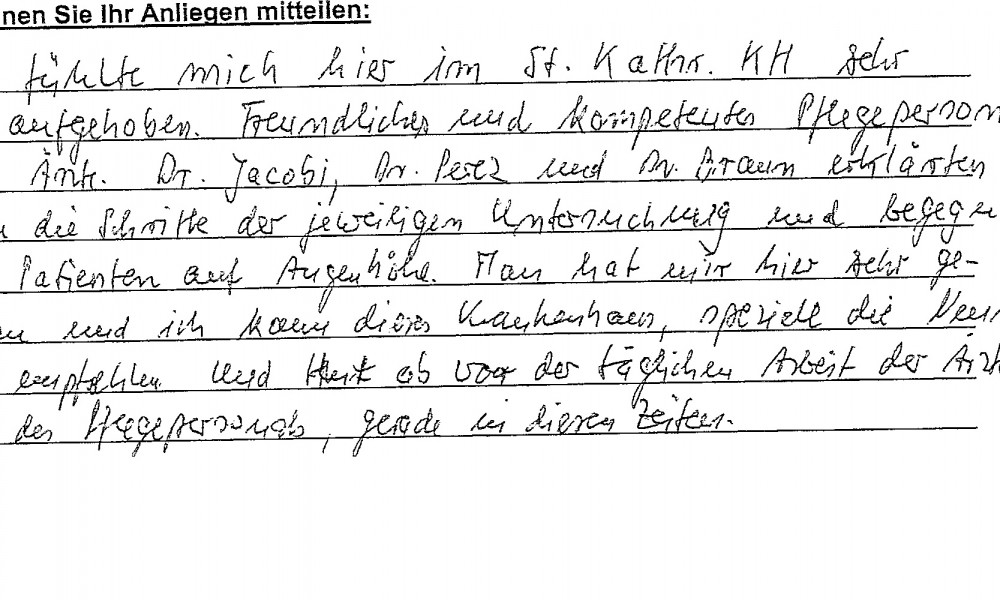 nen Sie Ihr Anliegen mitteilen:
fühlte mich hier im St. Kathr. KH sehr
aufgehoben. Freundliches und kompetentes Pflegeperson
Ärzte. Dr. Jacobi, Dr. Perez und Dr. Braun erklärten
die Schritte der jeweiligen Untersuchung und begegn
Patienten auf Augenhöhe. Man hat mir hier sehr ge-
und ich kann dieses Krankenhaus, speziell die Neur
empfehlen. Und Hut ab vor der täglichen Arbeit der Ärzt
des Pflegepersonals, gerade in diesen Zeiten.